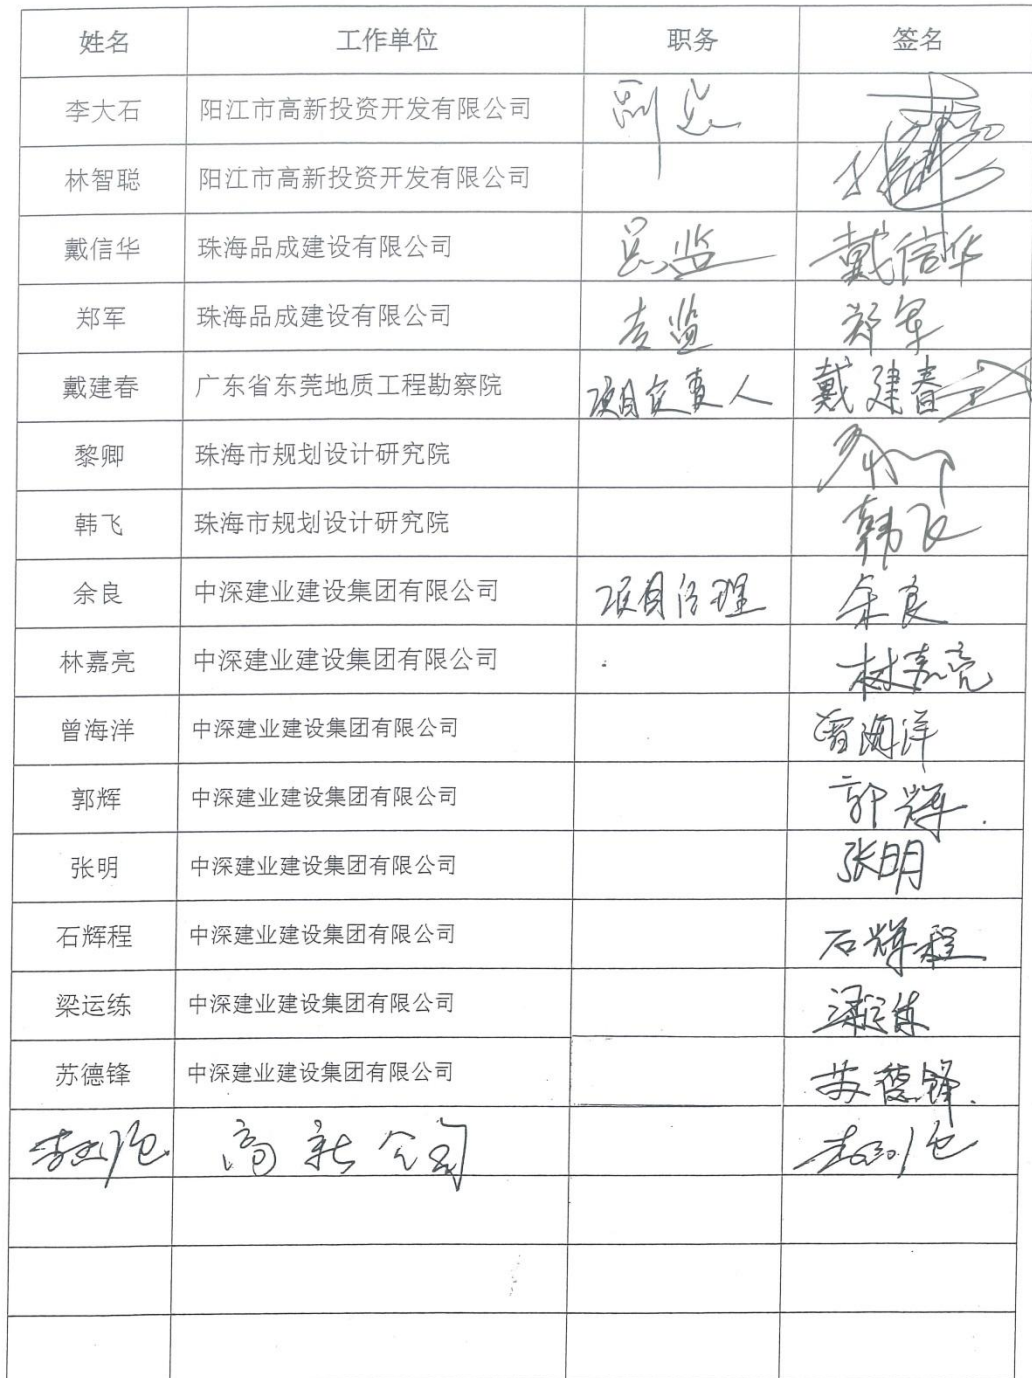 姓名 工作单位 职务 签名
李大石 阳江市高新投资开发有限公司 副总
林智聪 阳江市高新投资开发有限公司
戴信华 珠海品成建设有限公司 总监 戴信华
郑军 珠海品成建设有限公司 专监 郑军
戴建春 广东省东莞地质工程勘察院 项目负责人 戴建春
黎卿 珠海市规划设计研究院
韩飞 珠海市规划设计研究院 韩飞
余良 中深建业建设集团有限公司 项目经理 余良
林嘉亮 中深建业建设集团有限公司 林嘉亮
曾海洋 中深建业建设集团有限公司 曾海洋
郭辉 中深建业建设集团有限公司 郭辉
张明 中深建业建设集团有限公司 张明
石辉程 中深建业建设集团有限公司 石辉程
梁运练 中深建业建设集团有限公司 梁运练
苏德锋 中深建业建设集团有限公司 苏德锋
高新公司